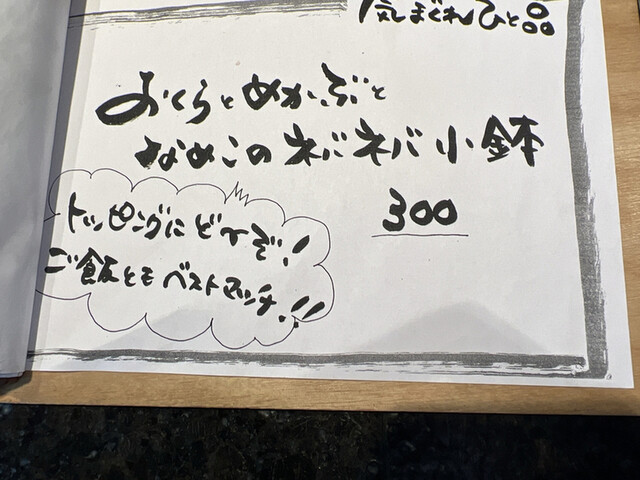 気まぐれひと品
おくらとめかぶと
なめこのネバネバ小鉢
300
トッピングにどーぞ!
ご飯ともベストマッチ!!